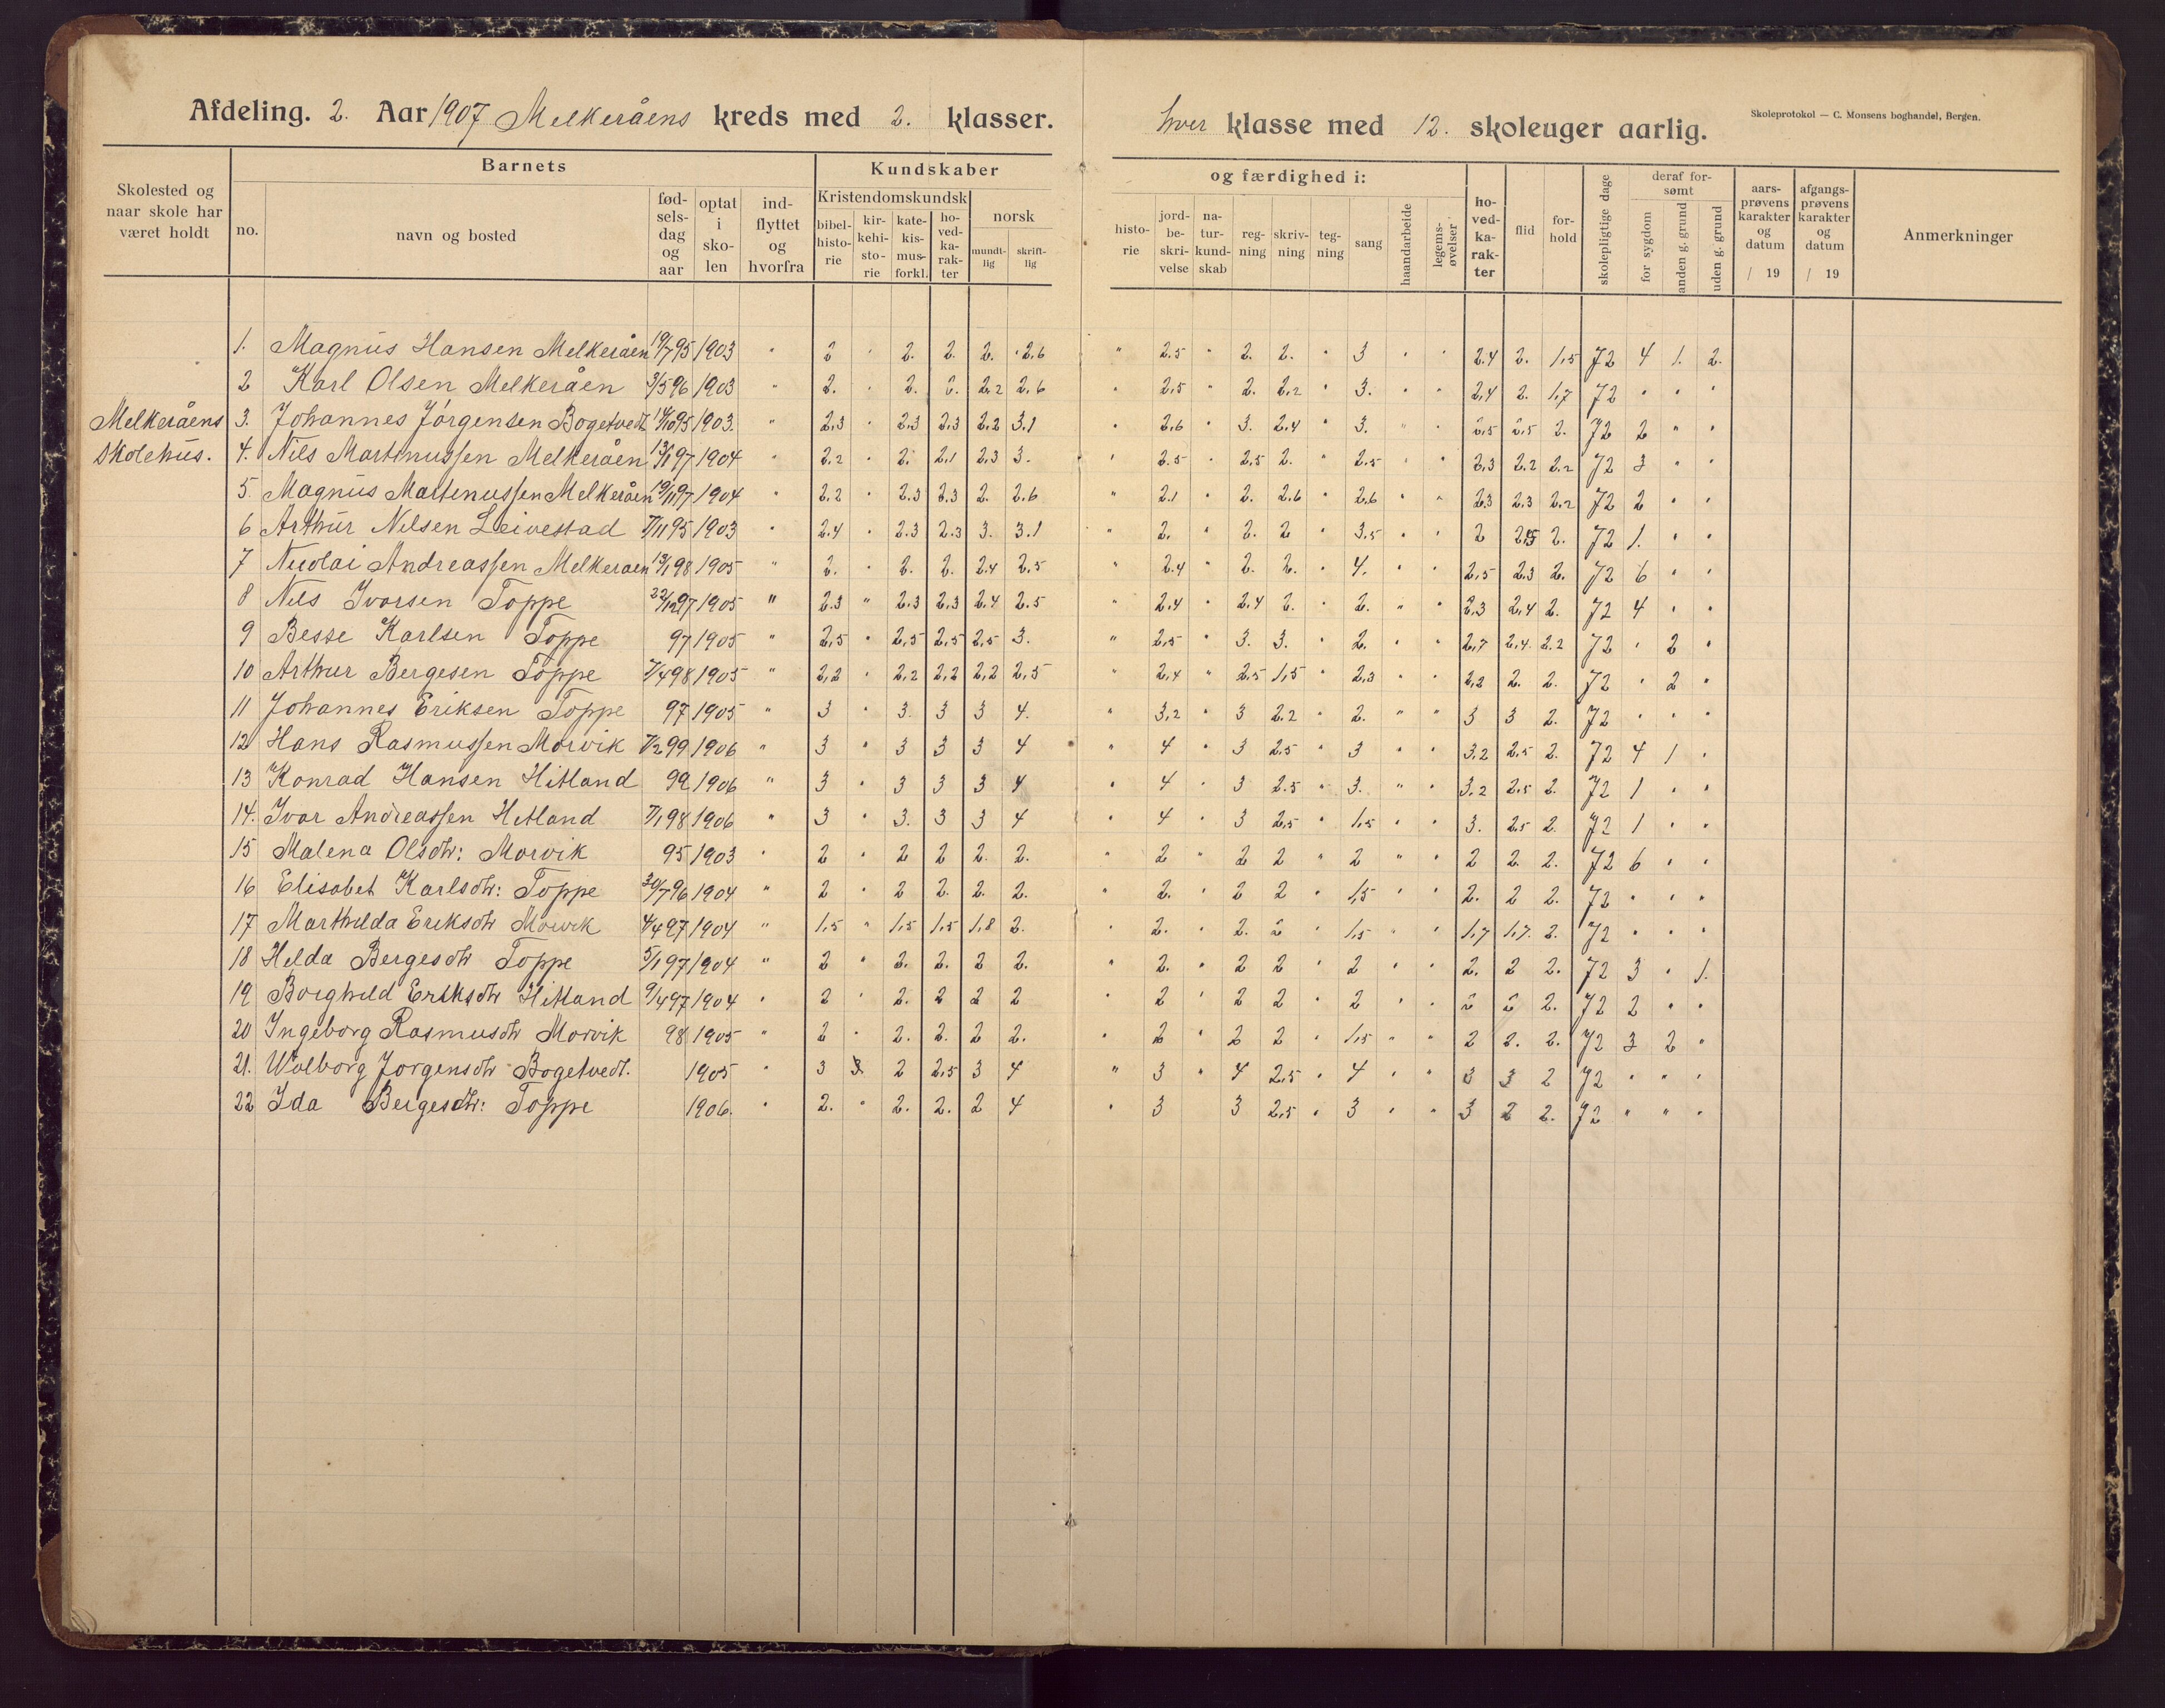 Afdeling. 2. Aar 1907 Melkeråens kreds med 2. klasser.
hver klasse med 12. skoleuger aarlig.
Skoleprotokol — C. Monsens boghandel, Bergen.
Skolested og naar skole har været holdt
Barnets
no.
navn og bosted
fød-sels-dag og aar
optat i sko-len
ind-flyttet og hvorfra
Kundskaber
Kristendomskundsk
bibel-histo-rie
kir-kehi-sto-rie
kate-kis-mus-forkl.
ho-ved-ka-rak-ter
norsk
mundt-lig
skrift-lig
og færdighed i:
histo-rie
jord-be-skri-velse
na-tur-kund-skab
reg-ning
skriv-ning
teg-ning
sang
haandarbeide
legems-øvelser
ho-ved-ka-rak-ter
flid
for-hold
skolepligtige dage
deraf for-sømt
for sygdom
anden g. grund
uden g. grund
aars-prøvens karakter og datum / 19
afgangs-prøvens karakter og datum / 19
Anmerkninger
Melkeråens
Skolehus.
1. Magnus Hansen Melkeråen 19/7 95 1903 " 2 " 2. 2. 2. 2.6 " 2.5 " 2. 2. " 3 " " 2.4 2. 1,5 72 4 1. 2.
2 Karl Olsen Melkeråen 3/5 96 1903 " 2. " 2. 2. 2.2 2.6 " 2,5 " 2. 2.2 " 3. " " 2,4 2. 1,7 72 " " "
3. Johannes Jörgensen Bogetvedt 14/10 95 1903. " 2,3 " 2.3 2.3 2.2 3.1 " 2.6 " 3. 2.4 " 3. " " 2.5 2.5 2. 72 2 " "
4. Nils Martinussen Melkeråen 13/1 97 1904 " 2.2 " 2. 2.1 2.3 3. " 2.5 " 2,5 2. " 2.5 " " 2,3 2.2 2.2 72 3 " "
5. Magnus Martinussen Melkeråen 19/11 97 1904 " 2,2 " 2.3 2.3 2. 2.6 " 2.1 " 2. 2.6 " 2,6 " " 2.3 2.3 2.2 72 2 " "
6 Arthur Nilsen Leivestad 7/11 95 1903 " 2.4 " 2.3 2.3 3. 3.1 " 2. " 2. 2 " 3.5 " " 2 2.5 2. 72 1. " "
7 Nicolai Andreassen Melkeraen 13/1 98 1905 " 2. " 2. 2. 2.4 2.5 " 2.4 " 2. 2. " 4. " " 2,5 2.3 2. 72 6 " "
8 Nils Ivarsen Toppe 22/12 97 1905 " 2.3 " 2.3 2.3 2.4 2.5 " 2.4 " 2.4 2. " 2. " " 2,3 2,4 2. 72 4 " "
9 Besse Karlsen Toppe 97 1905 " 2,5 " 2,5 2,5 2,5 3. " 2,5 " 3. 3. " 2. " " 2,7 2,4. 2.2 72 " 2 "
10 Arthur Bergesen Toppe 7/4 98 1905 " 2,2 " 2,2 2,2 2,2 2,5 " 2,4 " 2,5 1,5 " 2,3 " " 2,2 2. 2. 72 " 2 "
11 Johannes Eriksen Toppe 97 1905 " 3 " 3. 3 3 4. " 3,2 " 3 2.2 " 2. " " 3 3 2. 72 " " "
12 Hans Rasmussen Morvik 7/2 99 1906 " 3 " 3 3 3 4 " 4 " 3 2.5 " 3 " " 3,2 2,5 2. 72 4 1 "
13 Konrad Hansen Hitland 99 1906 " 3 " 3 3 3 4 " 4 " 3 2.5 " 3. " " 3.2 2,5 2. 72 1 " "
14. Ivar Andreassen Hitland 7/1 98 1906 " 3 " 3. 3 3 4 " 4 " 3 2,5 " 1,5 " " 3. 2.5 2. 72 1 " "
15 Malena Olsdtr: Morvik 95 1903 " 2 " 2 2 2. 2. " 2 " 2 2 " 2 " " 2 2. 2. 72 6 " "
16 Elisabet Karlsdtr: Toppe 30/7 96 1904 " 2 " 2 2. 2. 2. " 2. " 2 2 " 1,5 " " 2. 2 2. 72 " " "
17 Marthilda Eriksdtr Morvik 4/4 97 1904 " 1,5 " 1,5 1,5 1,8 2. " 2. " 2. 2 " 1,5 " " 1,7 1,7. 2. 72 " " "
18 Helda Bergesdtr Toppe 5/1 97 1904 " 2 " 2. 2. 2 2. " 2. " 2 2 " 2 " " 2. 2 2. 72 3 " 1.
19 Borghild Eriksdtr Hitland 9/4 97 1904 " 2 " 2. 2 2 2 " 2 " 2 2 " 2 " " 2 2 2. 72 2 " "
20 Ingeborg Rasmusdtr Morvik 98 1905 " 2 " 2. 2. 2 2. " 2 " 2 2 " 1,5 " " 2 2. 2. 72 3 2 "
21. Wolborg Jorgensdtr Bogetvedt. 1905 " 3 3. 2 2,5 3 4 " 3 " 4 2,5 " 4 " " 3 3 2 72 " " "
22 Ida Bergesdtr: Toppe 1906. " 2. " 2. 2. 2 4 " 3 3 2,5 " 3 " " 3 2 2. 72 " " "